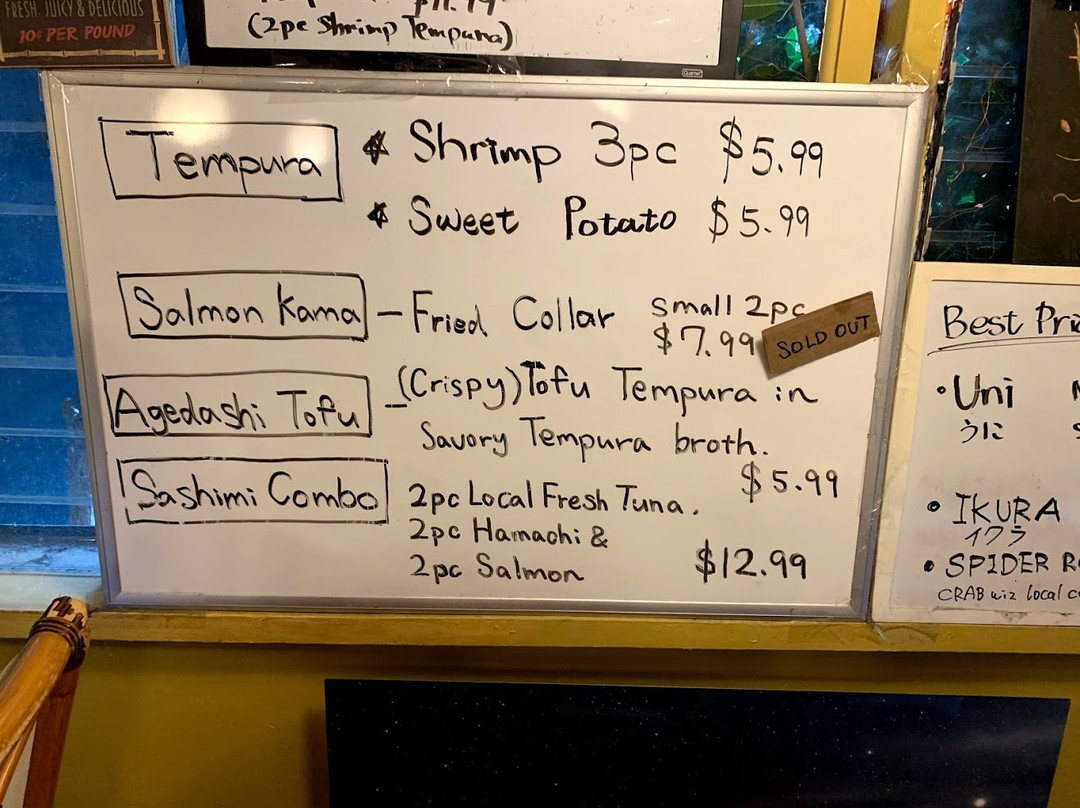 FRESH, JUICY & DELICIOUS
10¢ PER POUND
(2pc Shrimp Tempura)
Quartet
Tempura
Shrimp 3pc $5.99
Sweet Potato $5.99
Salmon Kama – Fried Collar small 2pc
$7.99
SOLD OUT
Agedashi Tofu – (Crispy) Tofu Tempura in
Savory Tempura broth.
$5.99
Sashimi Combo 2pc Local Fresh Tuna.
2pc Hamachi &
2pc Salmon $12.99
Best
• Uni
うに
• IKURA
イクラ
• SPIDER
CRAB wiz local